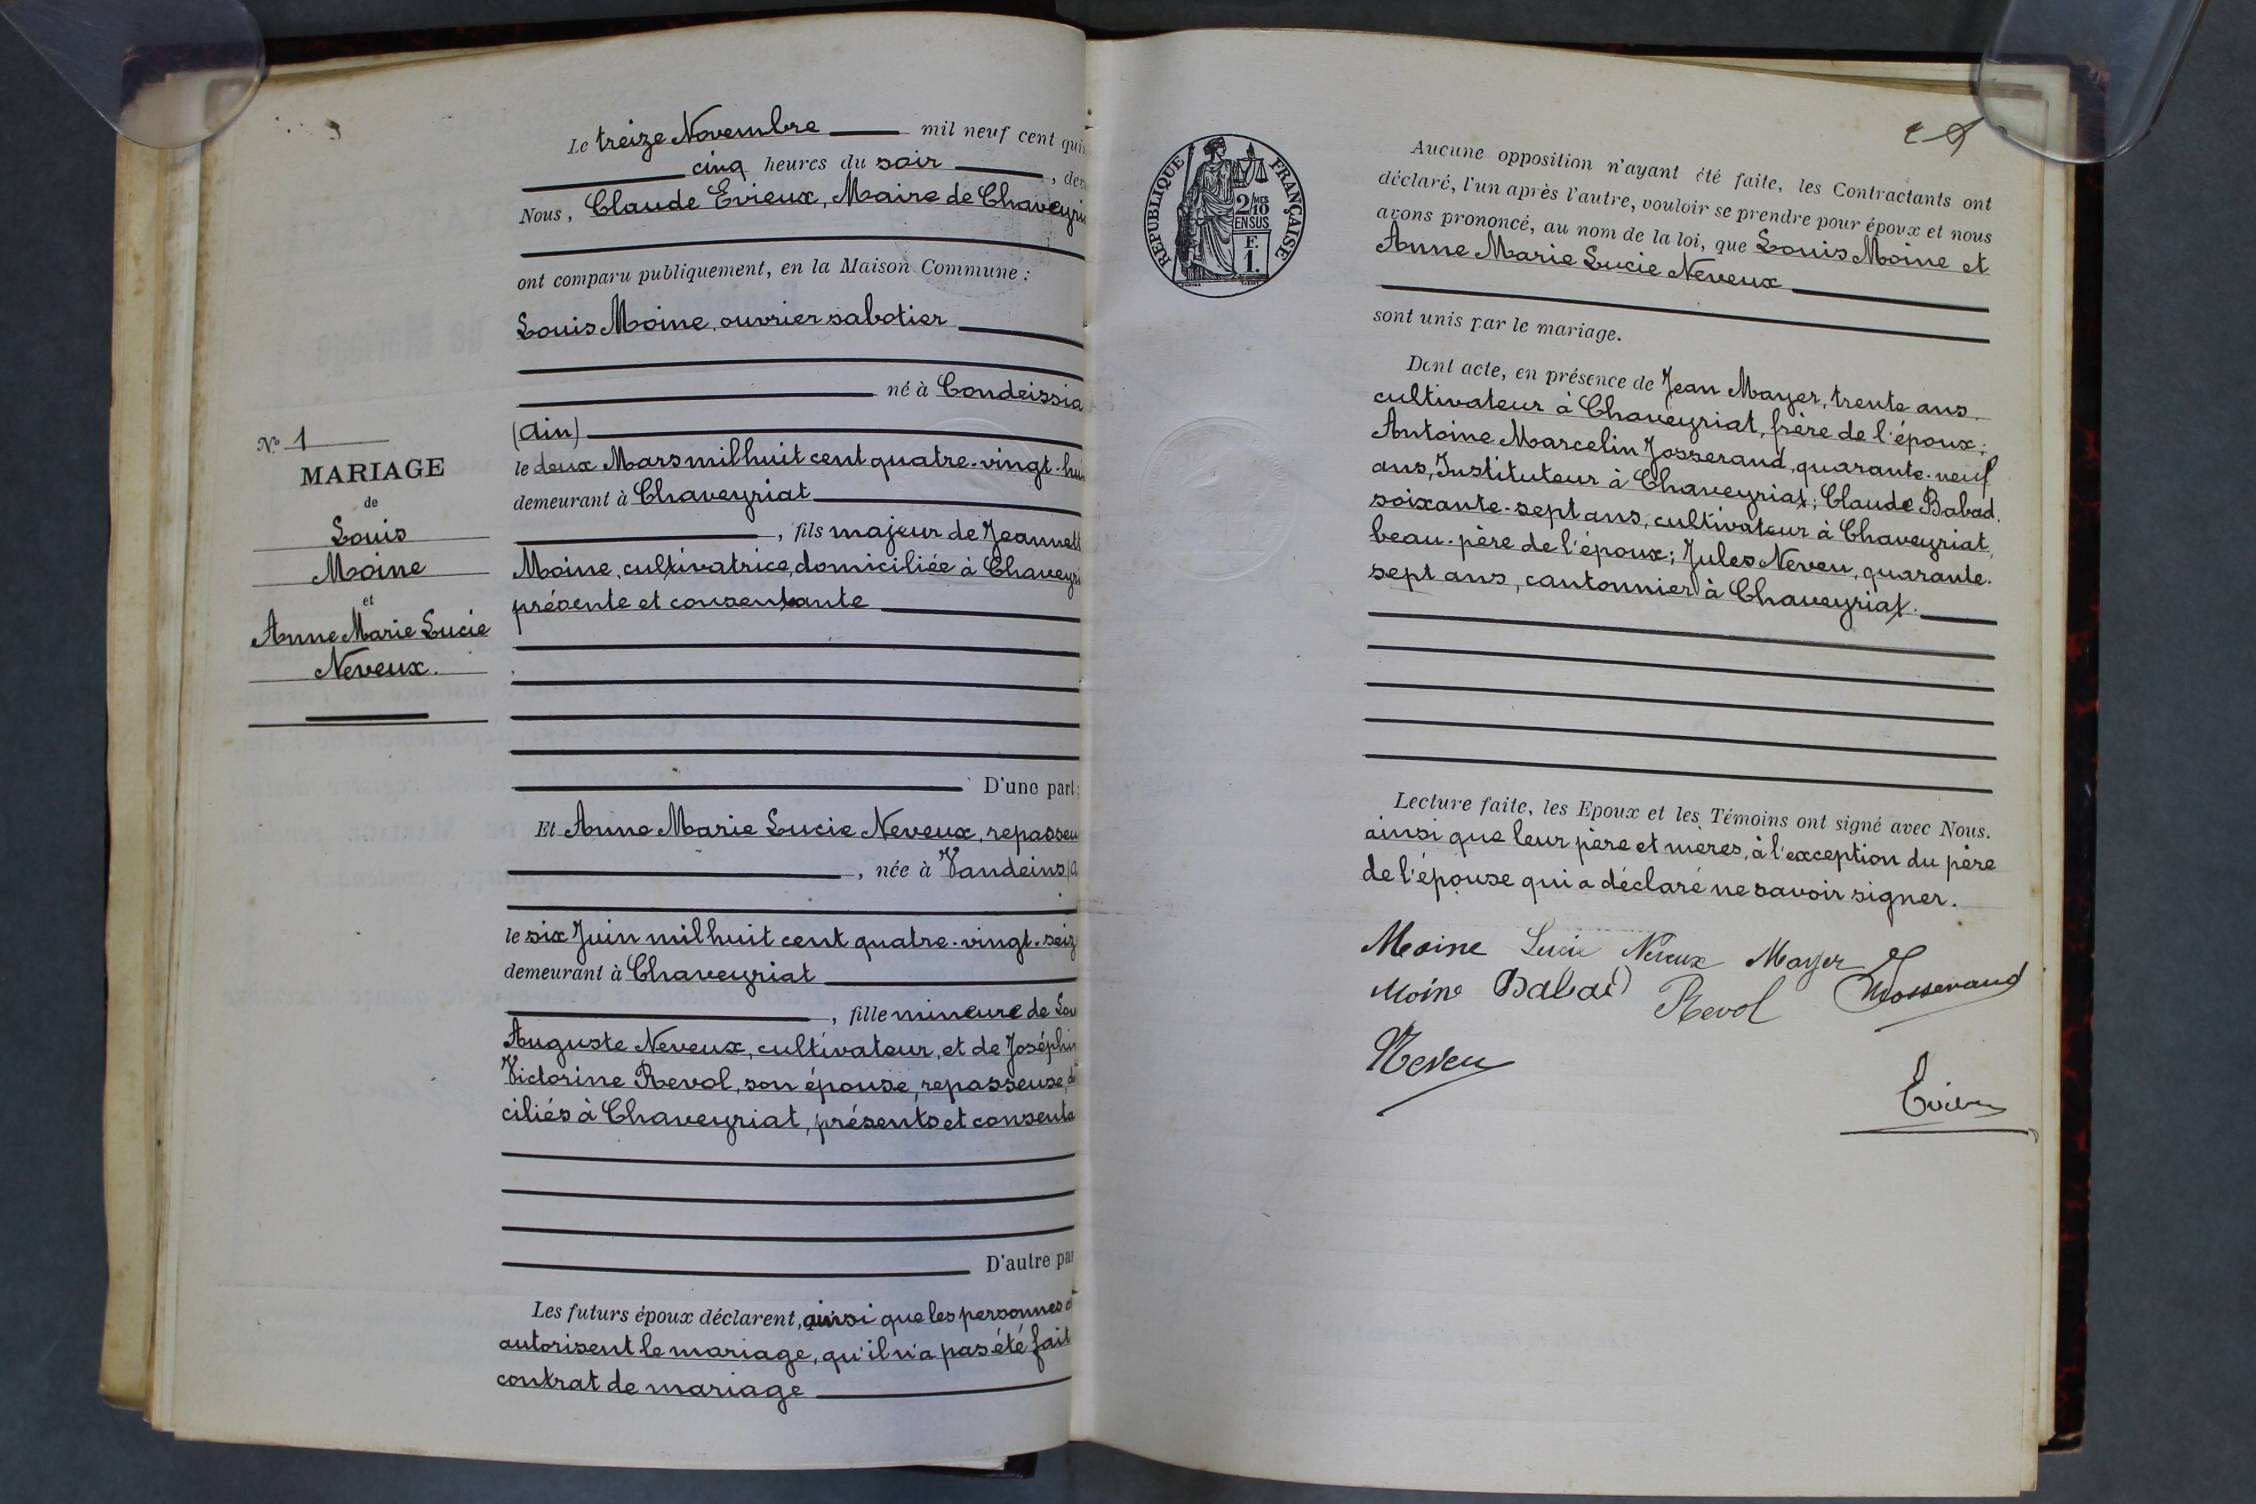 Le treize Novembre mil neuf cent qui
cinq heures du soir , de
Nous, Claude Evieux, Maire de Chaveyri
ont comparu publiquement, en la Maison Commune :
Louis Moine, ouvrier sabotier
né à Condeissia
(Ain)
le deux Mars mil huit cent quatre-vingt-hui
demeurant à Chaveyriat
, fils majeur de Jeannett
Moine, cultivatrice, domiciliée à Chaveyri
présente et consentante
D'une part;
Et Anne Marie Lucie Neveux, repasseu
, née à Vandeins (A
le six Juin mil huit cent quatre-vingt-seiz
demeurant à Chaveyriat
, fille mineure de Lou
Auguste Neveux, cultivateur, et de Joséphi
Victorine Revol, son épouse, repasseuse, d
ciliés à Chaveyriat, présents et consenta
D'autre par
Les futurs époux déclarent, ainsi que les personnes
autorisent le mariage, qu'il n'a pas été fait
contrat de mariage
N° 1
MARIAGE
de
Louis
Moine
et
Anne Marie Lucie
Neveux.
RÉPUBLIQUE FRANÇAISE
2 MES
10
EN SUS
F.
1.
Aucune opposition n'ayant été faite, les Contractants ont
déclaré, l'un après l'autre, vouloir se prendre pour époux et nous
avons prononcé, au nom de la loi, que Louis Moine et
Anne Marie Lucie Neveux
sont unis par le mariage.
Dont acte, en présence de Jean Mayer, trente ans,
cultivateur à Chaveyriat, frère de l'époux;
Antoine Marcelin Josserand, quarante-neuf
ans, Instituteur à Chaveyriat; Claude Babad,
soixante-sept ans, cultivateur à Chaveyriat,
beau-père de l'époux; Jules Neveu, quarante-
sept ans, cantonnier à Chaveyriat.
Lecture faite, les Epoux et les Témoins ont signé avec Nous.
ainsi que leur père et mères, à l'exception du père
de l'épouse qui a déclaré ne savoir signer.
Moine Lucie Neveux Mayer
Moine Babad Revol Josserand
Neveu
Evieux